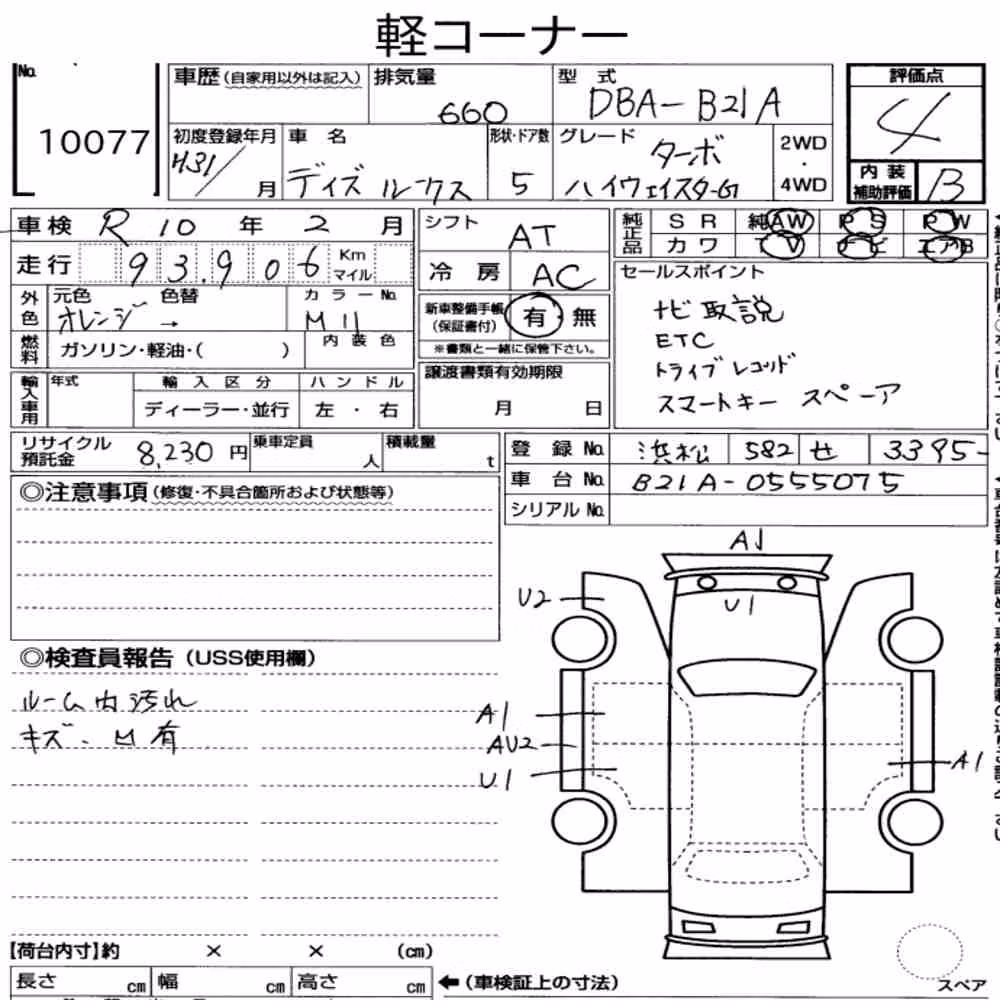 軽コーナー
No. 10077
車歴(自家用以外は記入) 排気量 660
型式 DBA-B21A
評価点 4
初度登録年月 H31/ 月
車名 ディズ ルークス
形状・ドア数 5
グレード ターボ ハイウェイスターG
2WD・4WD
内装補助評価 B
車検 R 10 年 2 月
シフト AT
純正品 SR 純AW PS PW
カワ TV ナビ エアB
走行 93,906 Km マイル
冷房 AC
セールスポイント
ナビ取説
ETC
ドライブレコード
スマートキー スペーア
外色 元色 オレンジ 色替 → カラーNo. M11
新車整備手帳(保証書付) 有 無
※書類と一緒に保管下さい。
燃料 ガソリン・軽油・( ) 内装色
輸入車用 年式 輸入区分 ハンドル
ディーラー・並行 左・右
譲渡書類有効期限
月 日
リサイクル預託金 8,230 円 乗車定員 人 積載量 t
登録No. 浜松 582 せ 3395
車台No. B21A-0555075
シリアルNo.
◎注意事項(修復・不具合箇所および状態等)
◎検査員報告(USS使用欄)
ルーム内汚れ
キズ・凹有
A1
U2
U1
A1
AU2
U1
A1
【荷台内寸】約 × × (cm)
長さ cm 幅 cm 高さ cm ←(車検証上の寸法)
スペア